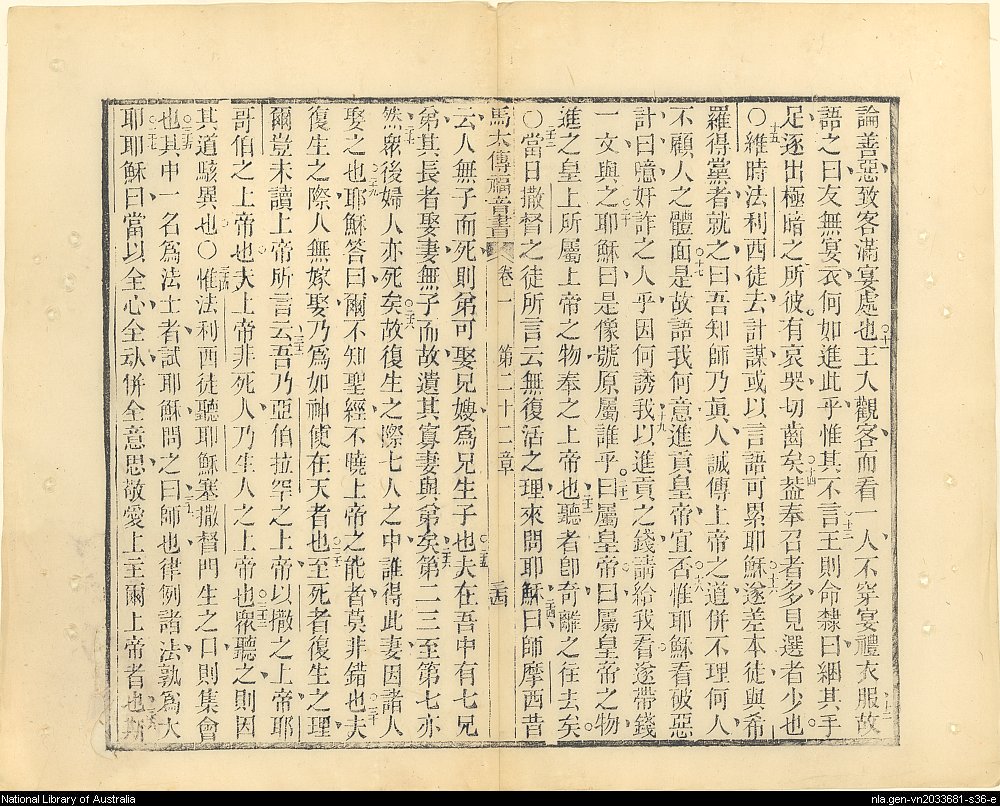 論善惡致客滿宴處也○十一王入觀客而看一人不穿宴禮衣服故○十二
語之曰友無宴衣何如進此乎惟其不言○十三王則命隸曰綑其手
足逐出極暗之所彼有哀哭切齒矣○十四葢奉召者多見選者少也
○十五維時法利西徒去計謀或以言語可累耶穌○十六遂差本徒與希
羅得黨者就之曰吾知師乃眞人誠傳上帝之道併不理何人
不顧人之體面○十七是故語我何意進貢皇帝宜否○十八惟耶穌看破惡
計曰噫奸詐之人乎因何誘我○十九以進貢之錢請給我看遂帶錢
一文與之○二十耶穌曰是像號原屬誰乎○二十一曰屬皇帝曰屬皇帝之物
進之皇上所屬上帝之物奉之上帝也○二十二聽者卽奇離之往去矣
○二十三當日撒督之徒所言云無復活之理來問耶穌○二十四曰師摩西昔
馬太傳福音書 卷一 第二十二章 三四
云人無子而死則弟可娶兄嫂爲兄生子也○二十五夫在吾中有七兄
弟其長者娶妻無子而故遺其寡妻與弟矣○二十六第二三至第七亦
然○二十七衆後婦人亦死矣○二十八故復生之際七人之中誰得此妻因諸人
娶之也○二十九耶穌答曰爾不知聖經不曉上帝之能者莫非錯也○三十夫
復生之際人無嫁娶乃爲如神使在天者也○三十一至死者復生之理
爾豈未讀上帝所言○三十二云吾乃亞伯拉罕之上帝以撒之上帝耶
哥伯之上帝也夫上帝非死人乃生人之上帝也○三十三衆聽之則因
其道駭異也○○三十四惟法利西徒聽耶穌塞撒督門生之口則集會
也○三十五其中一名爲法士者試耶穌問之○三十六曰師也律例諸法孰爲大
耶○三十七耶穌曰當以全心全氶併全意思敬愛上主爾上帝者也○三十八斯